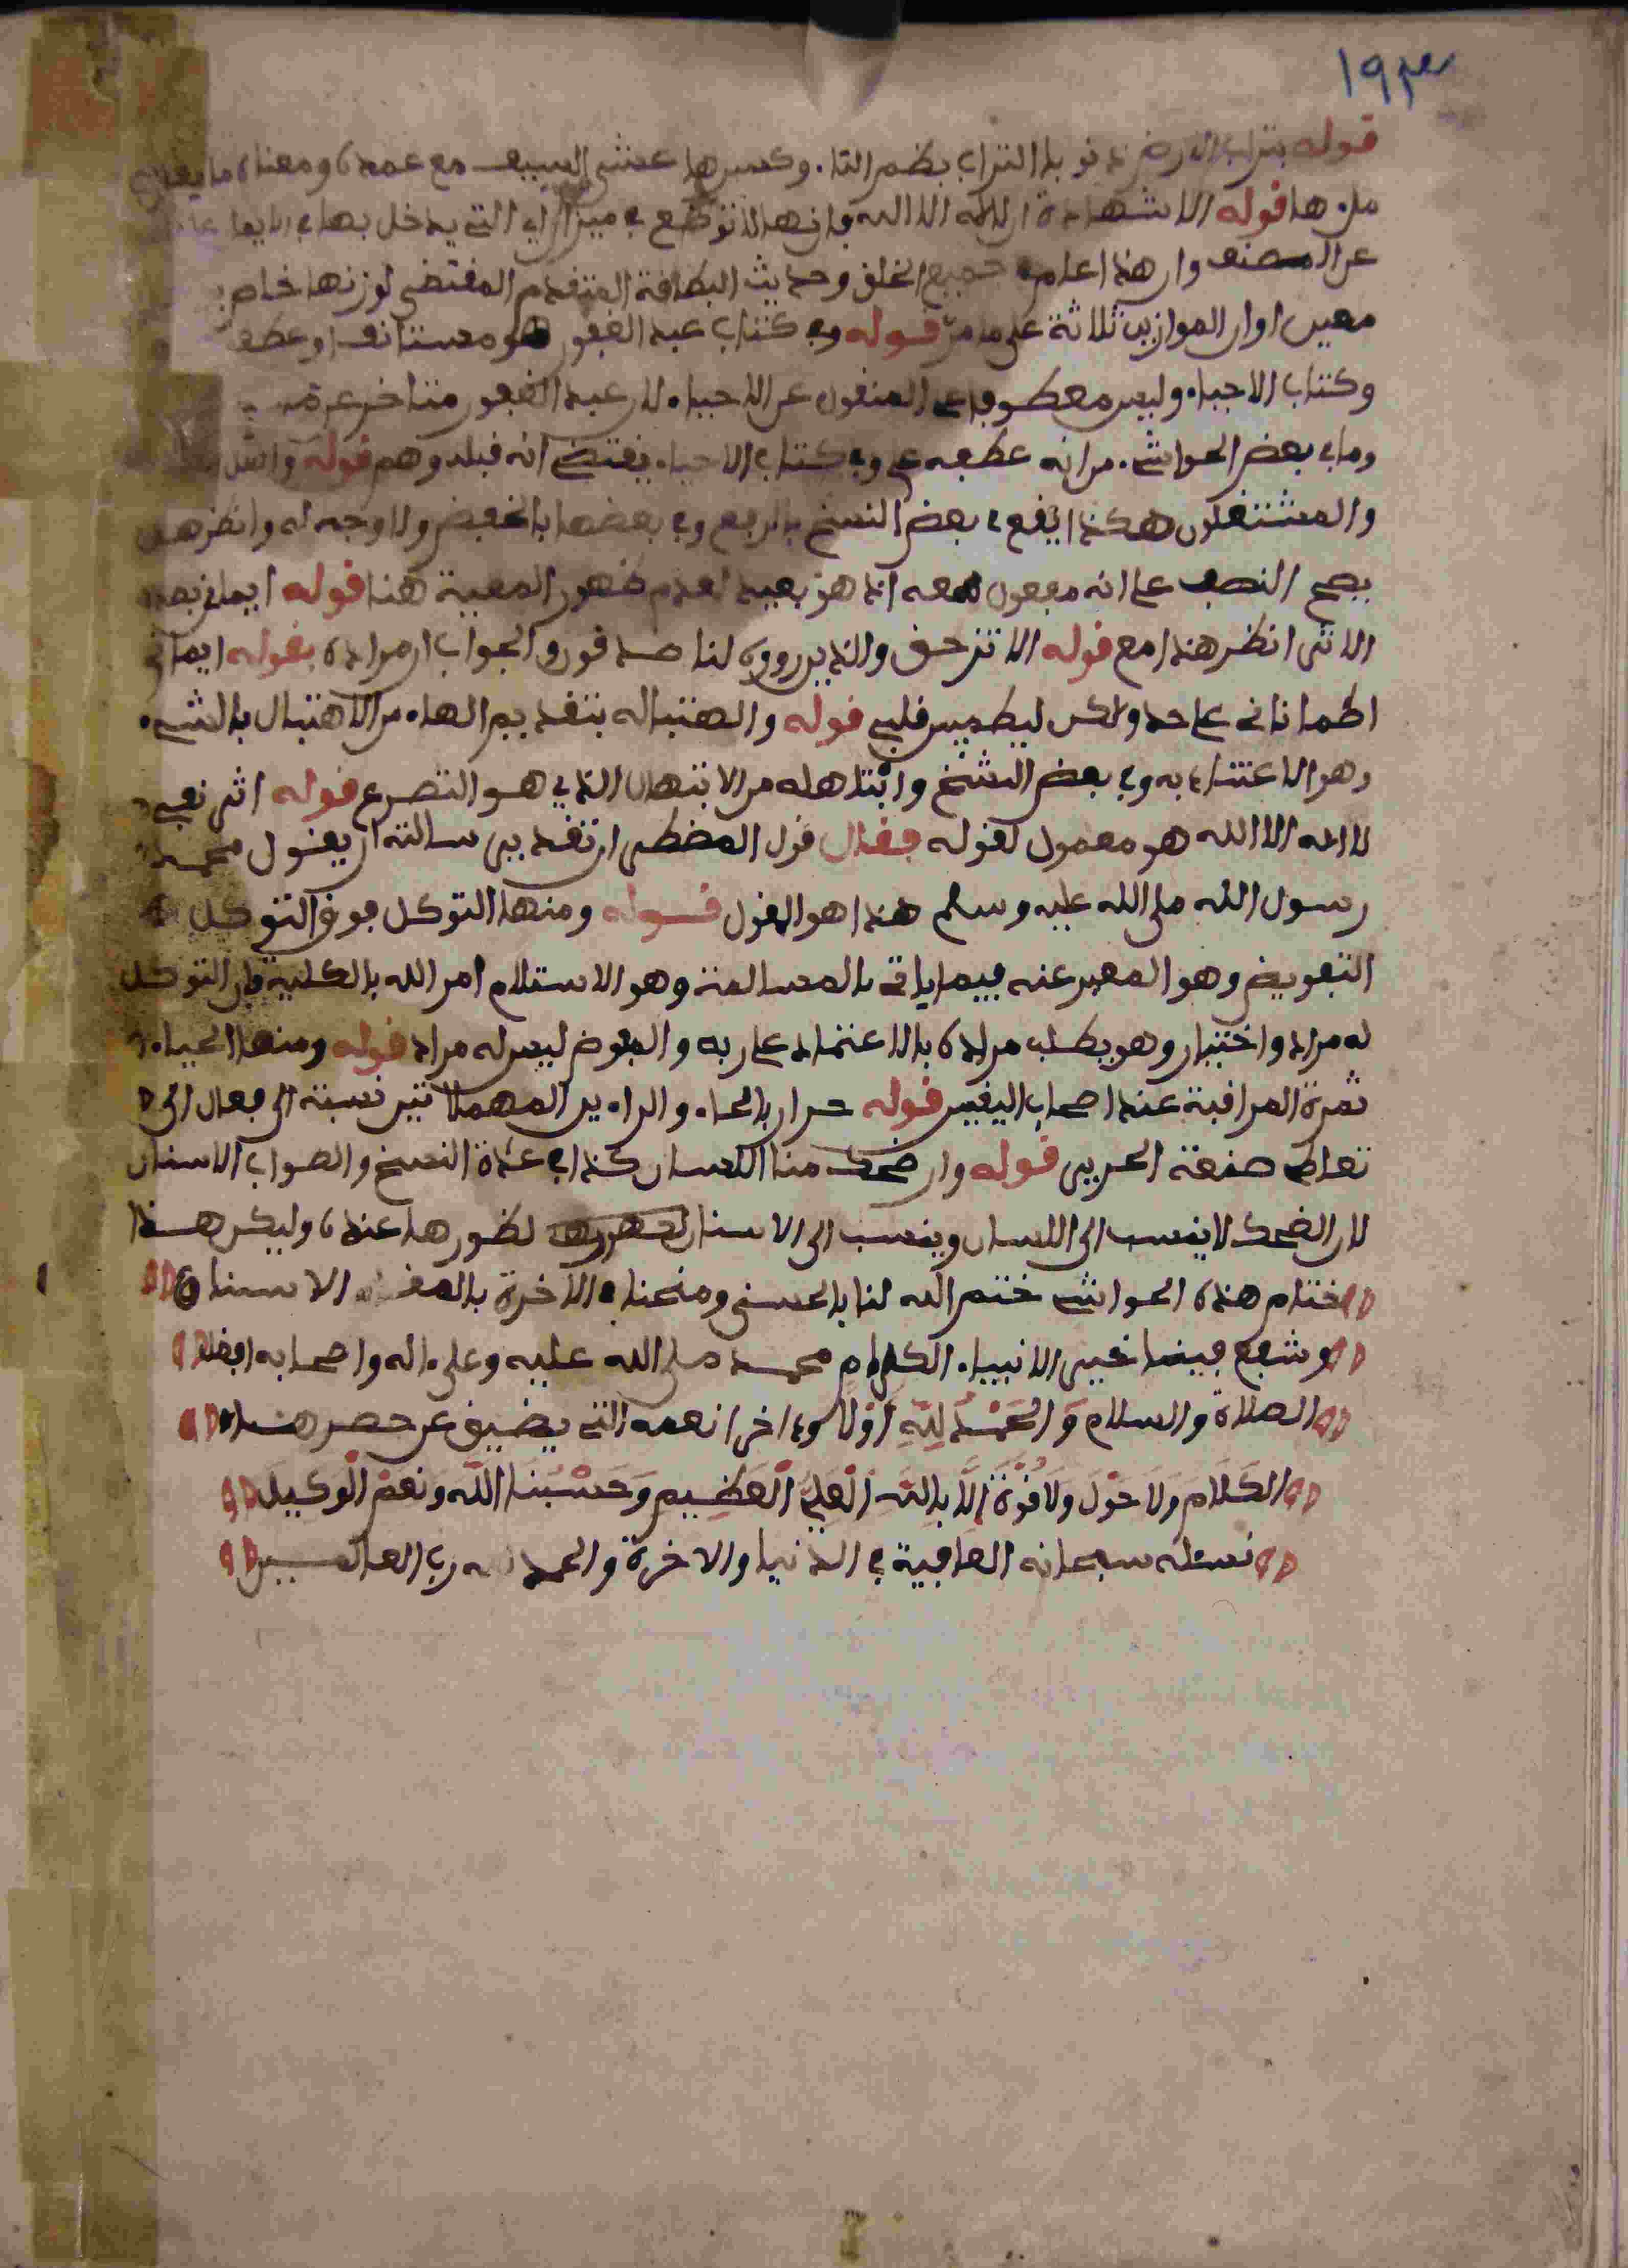 ١٩٣
قوله بتراب الارض ذنوبا التراب بضم التاء وكسرها عنشي السيف مع عمده ومعناه ما يقارب
ملءها قوله الا شهادة ان لا اله الا الله فانها لا توضع في ميزان اي التي يدخل بها في الايمان
عن المصنف وان هذا عام جميع الخلق وحديث البطاقة المتقدم المقتضي لوزنها خاص
معين او ان الموازين ثلاثة على ما مر قوله وفي كتاب عبد الغفور هو مستانف او عطف
وكتاب الاحياء وليس معطوفا على المنقول عن الاحياء لان عبد الغفور متاخر عن
وما في بعض الحواشي من انه عطفه على وفي كتاب الاحياء يقتضي انه قبله وهم قوله
والمشتغلون هكذا يقع في بعض النسخ بالرفع وفي بعضها بالخفض ولا وجه له وانظر هل
يصح النصب على انه مفعول معه اذ هو بعيد لعدم ظهور المعية هنا قوله ايماني بهذا
الاتي انظر هذا مع قوله الا تزحف والذين رووه لنا صدقوا والجواب ان مراده بقوله ايماني
اطمئناني على حد ولكن ليطمين قلبي قوله والهتباله بتقديم الهاء من الاهتبال بالشيء
وهو الاعتناء به وفي بعض النسخ وابتهاله من الابتهال الذي هو التضرع قوله اثر نفي
لا اله الا الله هو معمول لقوله فقال قول المضطر ان تقديس رسالته ان يقول محمد
رسول الله صلى الله عليه وسلم هذا هو القول قوله ومنها التوكل فوق التوكل
التفويض وهو المعبر عنه فيما ياتي بالمسالمة وهو الاستلام امر الله بالكلية فان التوكل
له مراد واختيار وهو يطلب مراده بالاعتماد على ربه والمفوض ليس له مراد قوله ومنها الحياء
ثمرة المراقبة عند اصحاب اليقين قوله حرار بالحاء والراءين المهملاتين نسبة الى فعال الى
تعاطى صنعة الحرير قوله وان ضحك منا اللسان كذا في عدة النسخ والصواب الاسنان
لان الضحك لا ينسب الى اللسان وينسب الى الاسنان لظهورها عنده وليكن هذا
ختام هذه الحواشي ختم الله لنا بالحسنى ومنحنا في الاخرة الاسنا
وشفع فينا خير الانبياء الكرام محمد صلى الله عليه وعلى اله واصحابه افضل
الصلاة والسلام وَالحَمْدُ لِلّهِ اوّلا وءاخرا نعمه التي يضيق عن حصر هذا
الكَلَام وَلَا حَوْل وَلَا قُوَّةَ إِلَّا بِاللّهِ الْعَلِيّ الْعَظِيم وَحَسْبُنَا اللّه وَنِعْمَ الْوَكِيل
نسئله سبحانه العافية في الدنيا والاخرة والحمد لله رب العالمين